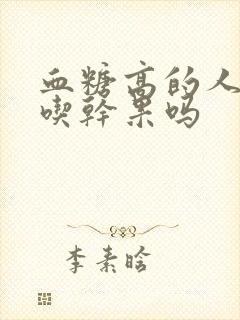 血糖高的人
喫幹果吗
李素晗